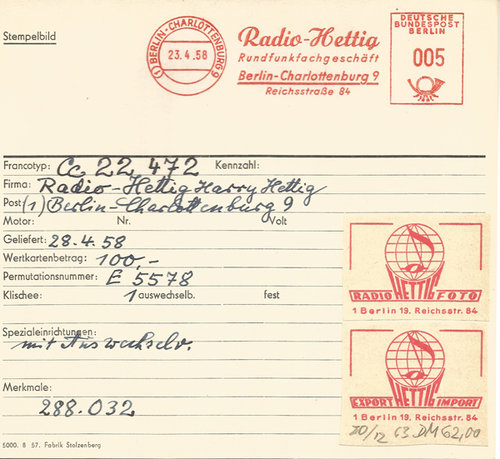 Stempelbild
(1) BERLIN-CHARLOTTENBURG 9
23.4.58
Radio-Hettig
Rundfunkfachgeschäft
Berlin-Charlottenburg 9
Reichsstraße 84
DEUTSCHE
BUNDESPOST
BERLIN
005
Francotyp: Cc 22 472 Kennzahl:
Firma: Radio-Hettig Harry Hettig
Post (1) Berlin-Charlottenburg 9
Motor: Nr. Volt
Geliefert: 28.4.58
Wertkartenbetrag: 100,-
Permutationsnummer: E 5578
Klischee: 1 auswechselb. fest
RADIO HETTIG FOTO
1 Berlin 19, Reichsstr. 84
Spezialeinrichtungen:
mit Auswechselv.
EXPORT HETTIG IMPORT
1 Berlin 19, Reichsstr. 84
20/12 63 DM 62,00
Merkmale:
288.032
5000. 8 57. Fabrik Stolzenberg